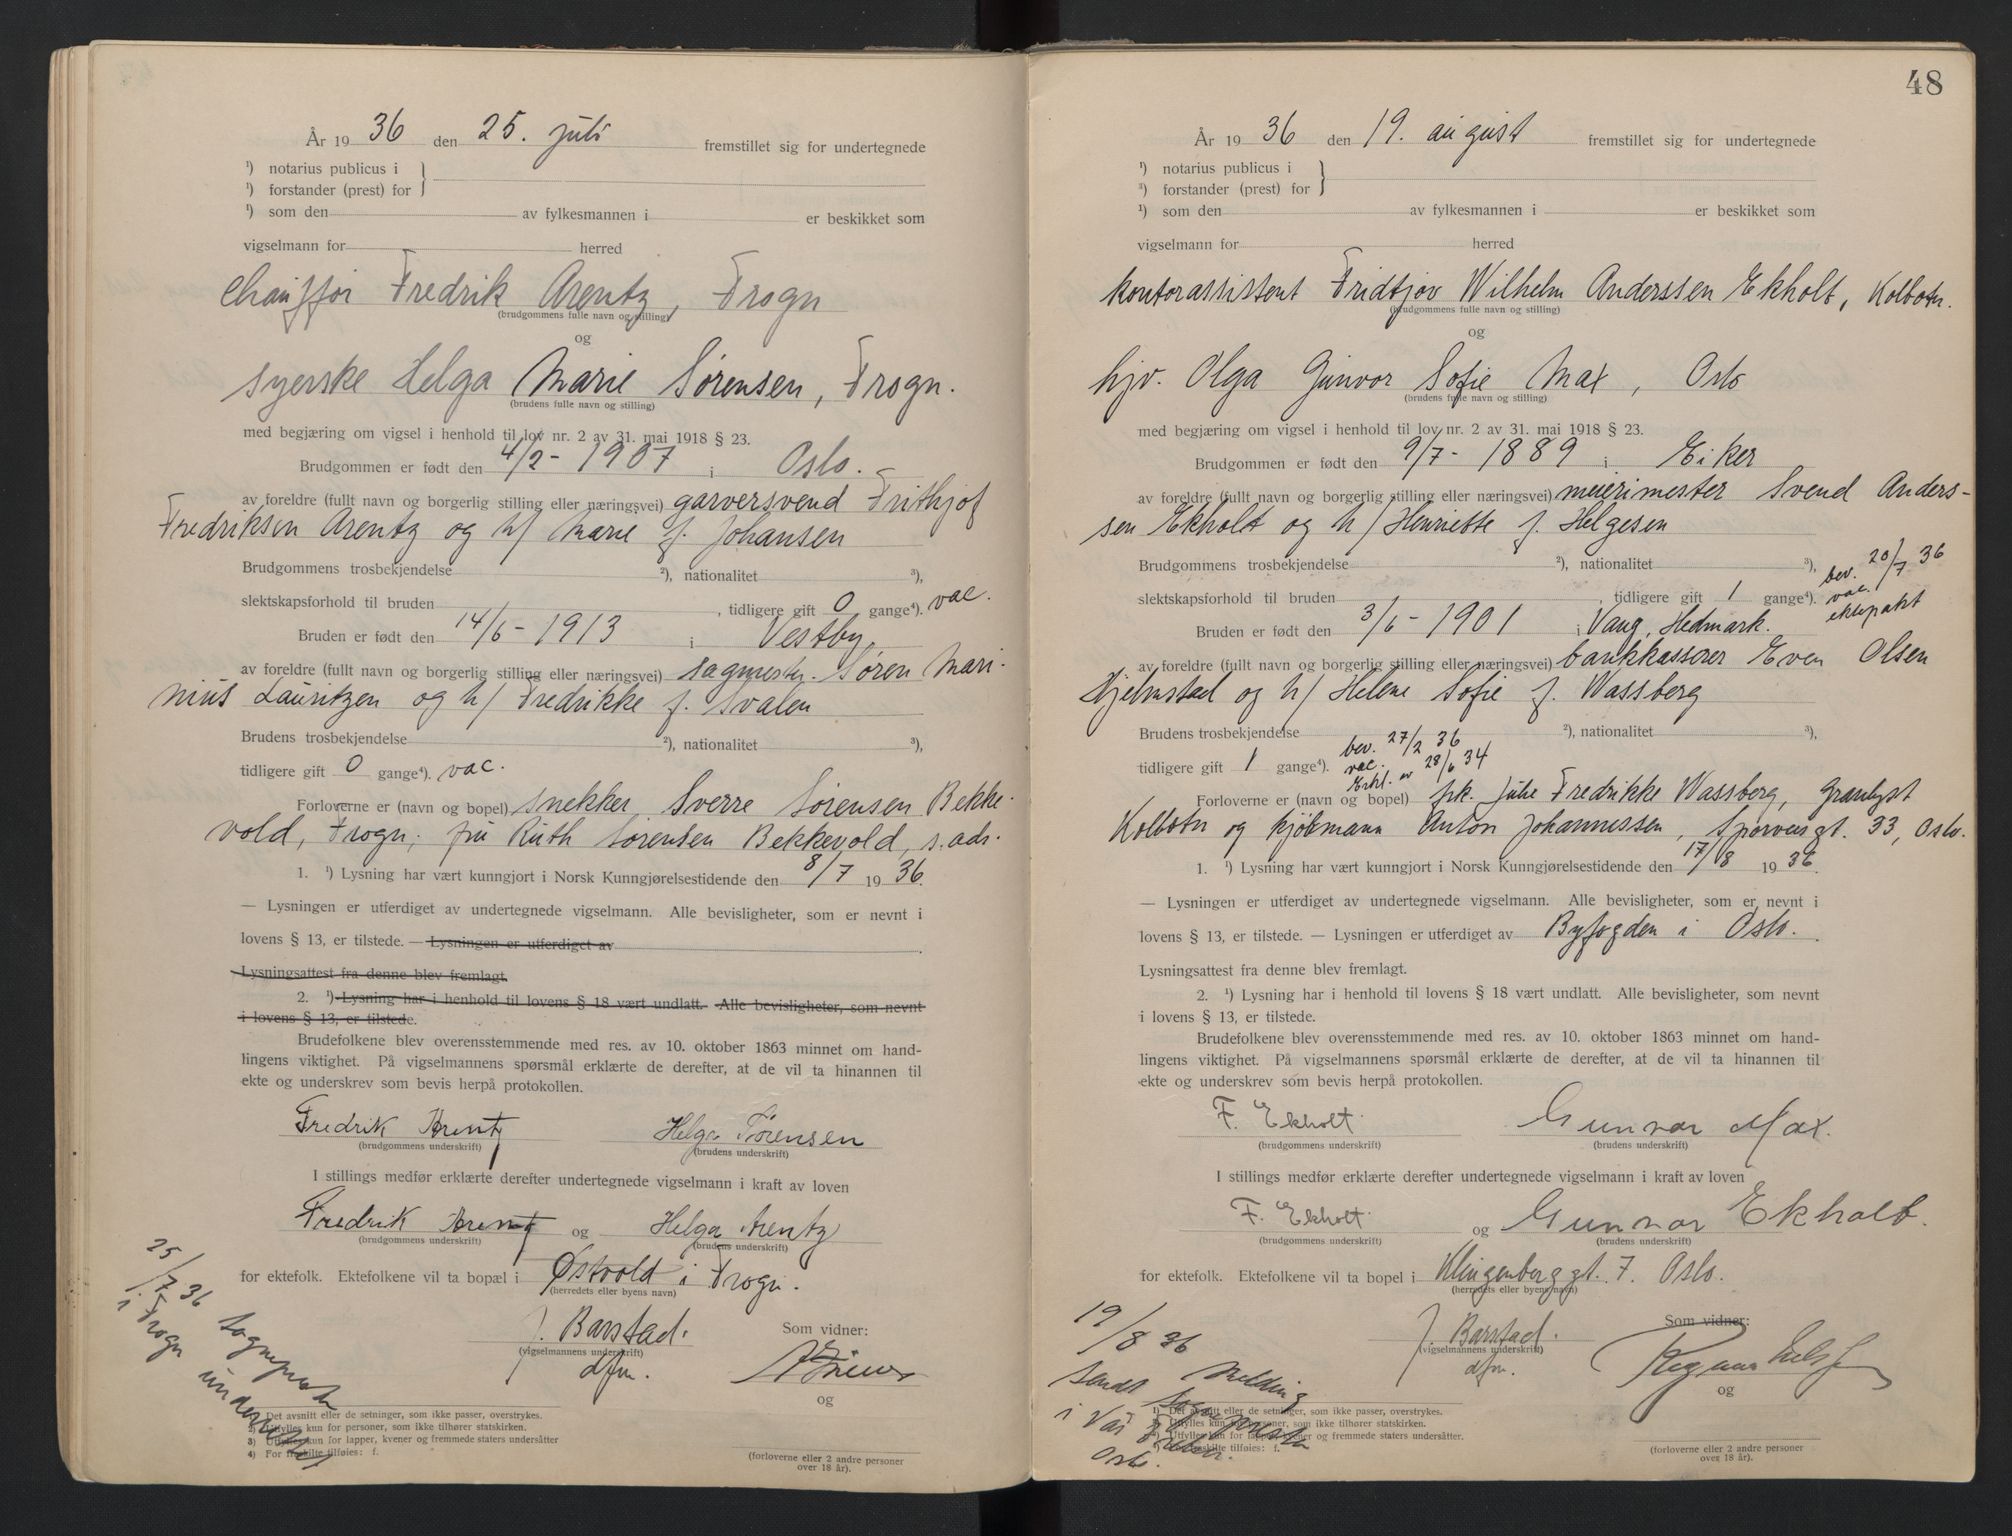 År 1936 den 25. juli fremstillet sig for undertegnede
¹) notarius publicus i
¹) forstander (prest) for
¹) som den av fylkesmannen i er beskikket som
vigselmann for herred
chauffør Fredrik Arentz, Frogn
(brudgommens fulle navn og stilling)
og
syerske Helga Marie Sørensen, Frogn.
(brudens fulle navn og stilling)
med begjæring om vigsel i henhold til lov nr. 2 av 31. mai 1918 § 23.
Brudgommen er født den 4/2 - 1907 i Oslo.
av foreldre (fullt navn og borgerlig stilling eller næringsvei) garversvend Frithjof
Fredriksen Arentz og h/ Marie f. Johansen
Brudgommens trosbekjendelse ²), nationalitet ³),
slektskapsforhold til bruden , tidligere gift 0 gange⁴). vac.
Bruden er født den 14/6 - 1913 i Vestby,
av foreldre (fullt navn og borgerlig stilling eller næringsvei) sagmester. Søren Mari-
nius Lauritzen og h/ Fredrikke f. Svalen
Brudens trosbekjendelse ²), nationalitet ³),
tidligere gift 0 gange⁴). vac.
Forloverne er (navn og bopel) snekker Sverre Sørensen Bekke-
vold, Frogn, fru Ruth Sørensen Bekkevold, s. ads.
1. ¹) Lysning har vært kunngjort i Norsk Kunngjørelsestidende den 8/7 1936.
— Lysningen er utferdiget av undertegnede vigselmann. Alle bevisligheter, som er nevnt i
lovens § 13, er tilstede. — Lysningen er utferdiget av
Lysningsattest fra denne blev fremlagt.
2. ¹) Lysning har i henhold til lovens § 18 vært undlatt. Alle bevisligheter, som nevnt
i lovens § 13, er tilstede.
Brudefolkene blev overensstemmende med res. av 10. oktober 1863 minnet om hand-
lingens viktighet. På vigselmannens spørsmål erklærte de derefter, at de vil ta hinannen til
ekte og underskrev som bevis herpå protokollen.
Fredrik Arentz Helga Sørensen
(brudgommens underskrift) (brudens underskrift)
I stillings medfør erklærte derefter undertegnede vigselmann i kraft av loven
Fredrik Arentz og Helga Arentz
(brudgommens underskrift) (brudens underskrift)
for ektefolk. Ektefolkene vil ta bopæl i Østvold i Frogn.
(herredets eller byens navn)
25/7 36 sogneprest
i Frogn underrettet
J. Barstad. Som vidner:
(vigselmannens underskrift)
dfm.
og
1) Det avsnitt eller de setninger, som ikke passer, overstrykes.
2) Utfylles kun for personer, som ikke tilhører statskirken.
3) Utfylles kun for lapper, kvener og fremmede staters undersåtter
4) For fraskilte tilføies: f.
(forloverne eller 2 andre personer
over 18 år).
48
År 1936 den 19. august fremstillet sig for undertegnede
¹) notarius publicus i
¹) forstander (prest) for
¹) som den av fylkesmannen i er beskikket som
vigselmann for herred
kontorassistent Fridtjov Wilhelm Anderssen Ekholt, Kolbotn.
(brudgommens fulle navn og stilling)
og
hjv. Olga Gunvor Sofie Max, Oslo
(brudens fulle navn og stilling)
med begjæring om vigsel i henhold til lov nr. 2 av 31. mai 1918 § 23.
Brudgommen er født den 9/7 - 1889 i Eiker
av foreldre (fullt navn og borgerlig stilling eller næringsvei) meierimester Svend Anders-
sen Ekholt og h/ Henriette f. Helgesen
Brudgommens trosbekjendelse ²), nationalitet ³), bev. 20/7 36
slektskapsforhold til bruden , tidligere gift 1 gange⁴). vac.
ektepakt
Bruden er født den 3/6 - 1901 i Vang, Hedmark.
av foreldre (fullt navn og borgerlig stilling eller næringsvei) bankkasserer Even Olsen
Hjelmstad og h/ Helene Sofie f. Wassberg
Brudens trosbekjendelse ²), nationalitet ³),
tidligere gift 1 gange⁴). bev. 27/2 36
vac.
Erkl. av 28/6 34
Forloverne er (navn og bopel) frk. Julie Fredrikke Wassberg, Granlyst
Kolbotn og kjøbmann Anton Johannessen, Sporveisgt. 33, Oslo.
1. ¹) Lysning har vært kunngjort i Norsk Kunngjørelsestidende den 17/8 1936.
— Lysningen er utferdiget av undertegnede vigselmann. Alle bevisligheter, som er nevnt i
lovens § 13, er tilstede. — Lysningen er utferdiget av Byfogden i Oslo.
Lysningsattest fra denne blev fremlagt.
2. ¹) Lysning har i henhold til lovens § 18 vært undlatt. Alle bevisligheter, som nevnt
i lovens § 13, er tilstede.
Brudefolkene blev overensstemmende med res. av 10. oktober 1863 minnet om hand-
lingens viktighet. På vigselmannens spørsmål erklærte de derefter, at de vil ta hinannen til
ekte og underskrev som bevis herpå protokollen.
F. Ekholt Gunvor Max.
(brudgommens underskrift) (brudens underskrift)
I stillings medfør erklærte derefter undertegnede vigselmann i kraft av loven
F. Ekholt og Gunvor Ekholt.
(brudgommens underskrift) (brudens underskrift)
for ektefolk. Ektefolkene vil ta bopel i Klingenberggt. 7. Oslo.
(herredets eller byens navn)
19/8 36
Sendt Melding
sognepresten
i Vår
Oslo.
J. Barstad. Som vidner:
(vigselmannens underskrift)
dfm.
og
1) Det avsnitt eller de setninger, som ikke passer, overstrykes.
2) Utfylles kun for personer, som ikke tilhører statskirken.
3) Utfylles kun for lapper, kvener og fremmede staters undersåtter.
4) For fraskilte tilføies: f.
(forloverne eller 2 andre personer
over 18 år).